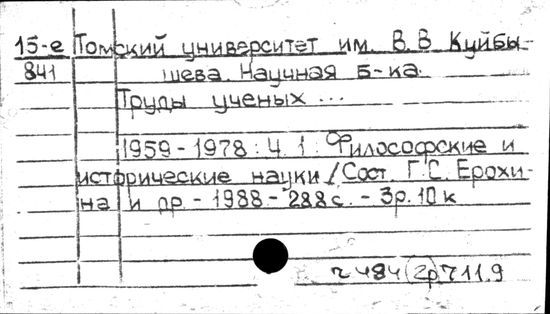 15-е Томский университет им. В.В Куйбы-
841 шева. Научная б-ка.
Труды ученых ...
1959-1978 : Ч. 1 : Философские и
исторические науки / Сост. Г.С. Ерохи-
на и др. - 1988 - 288 с. - 3р. 10 к
ч 484 (2р) 711.9